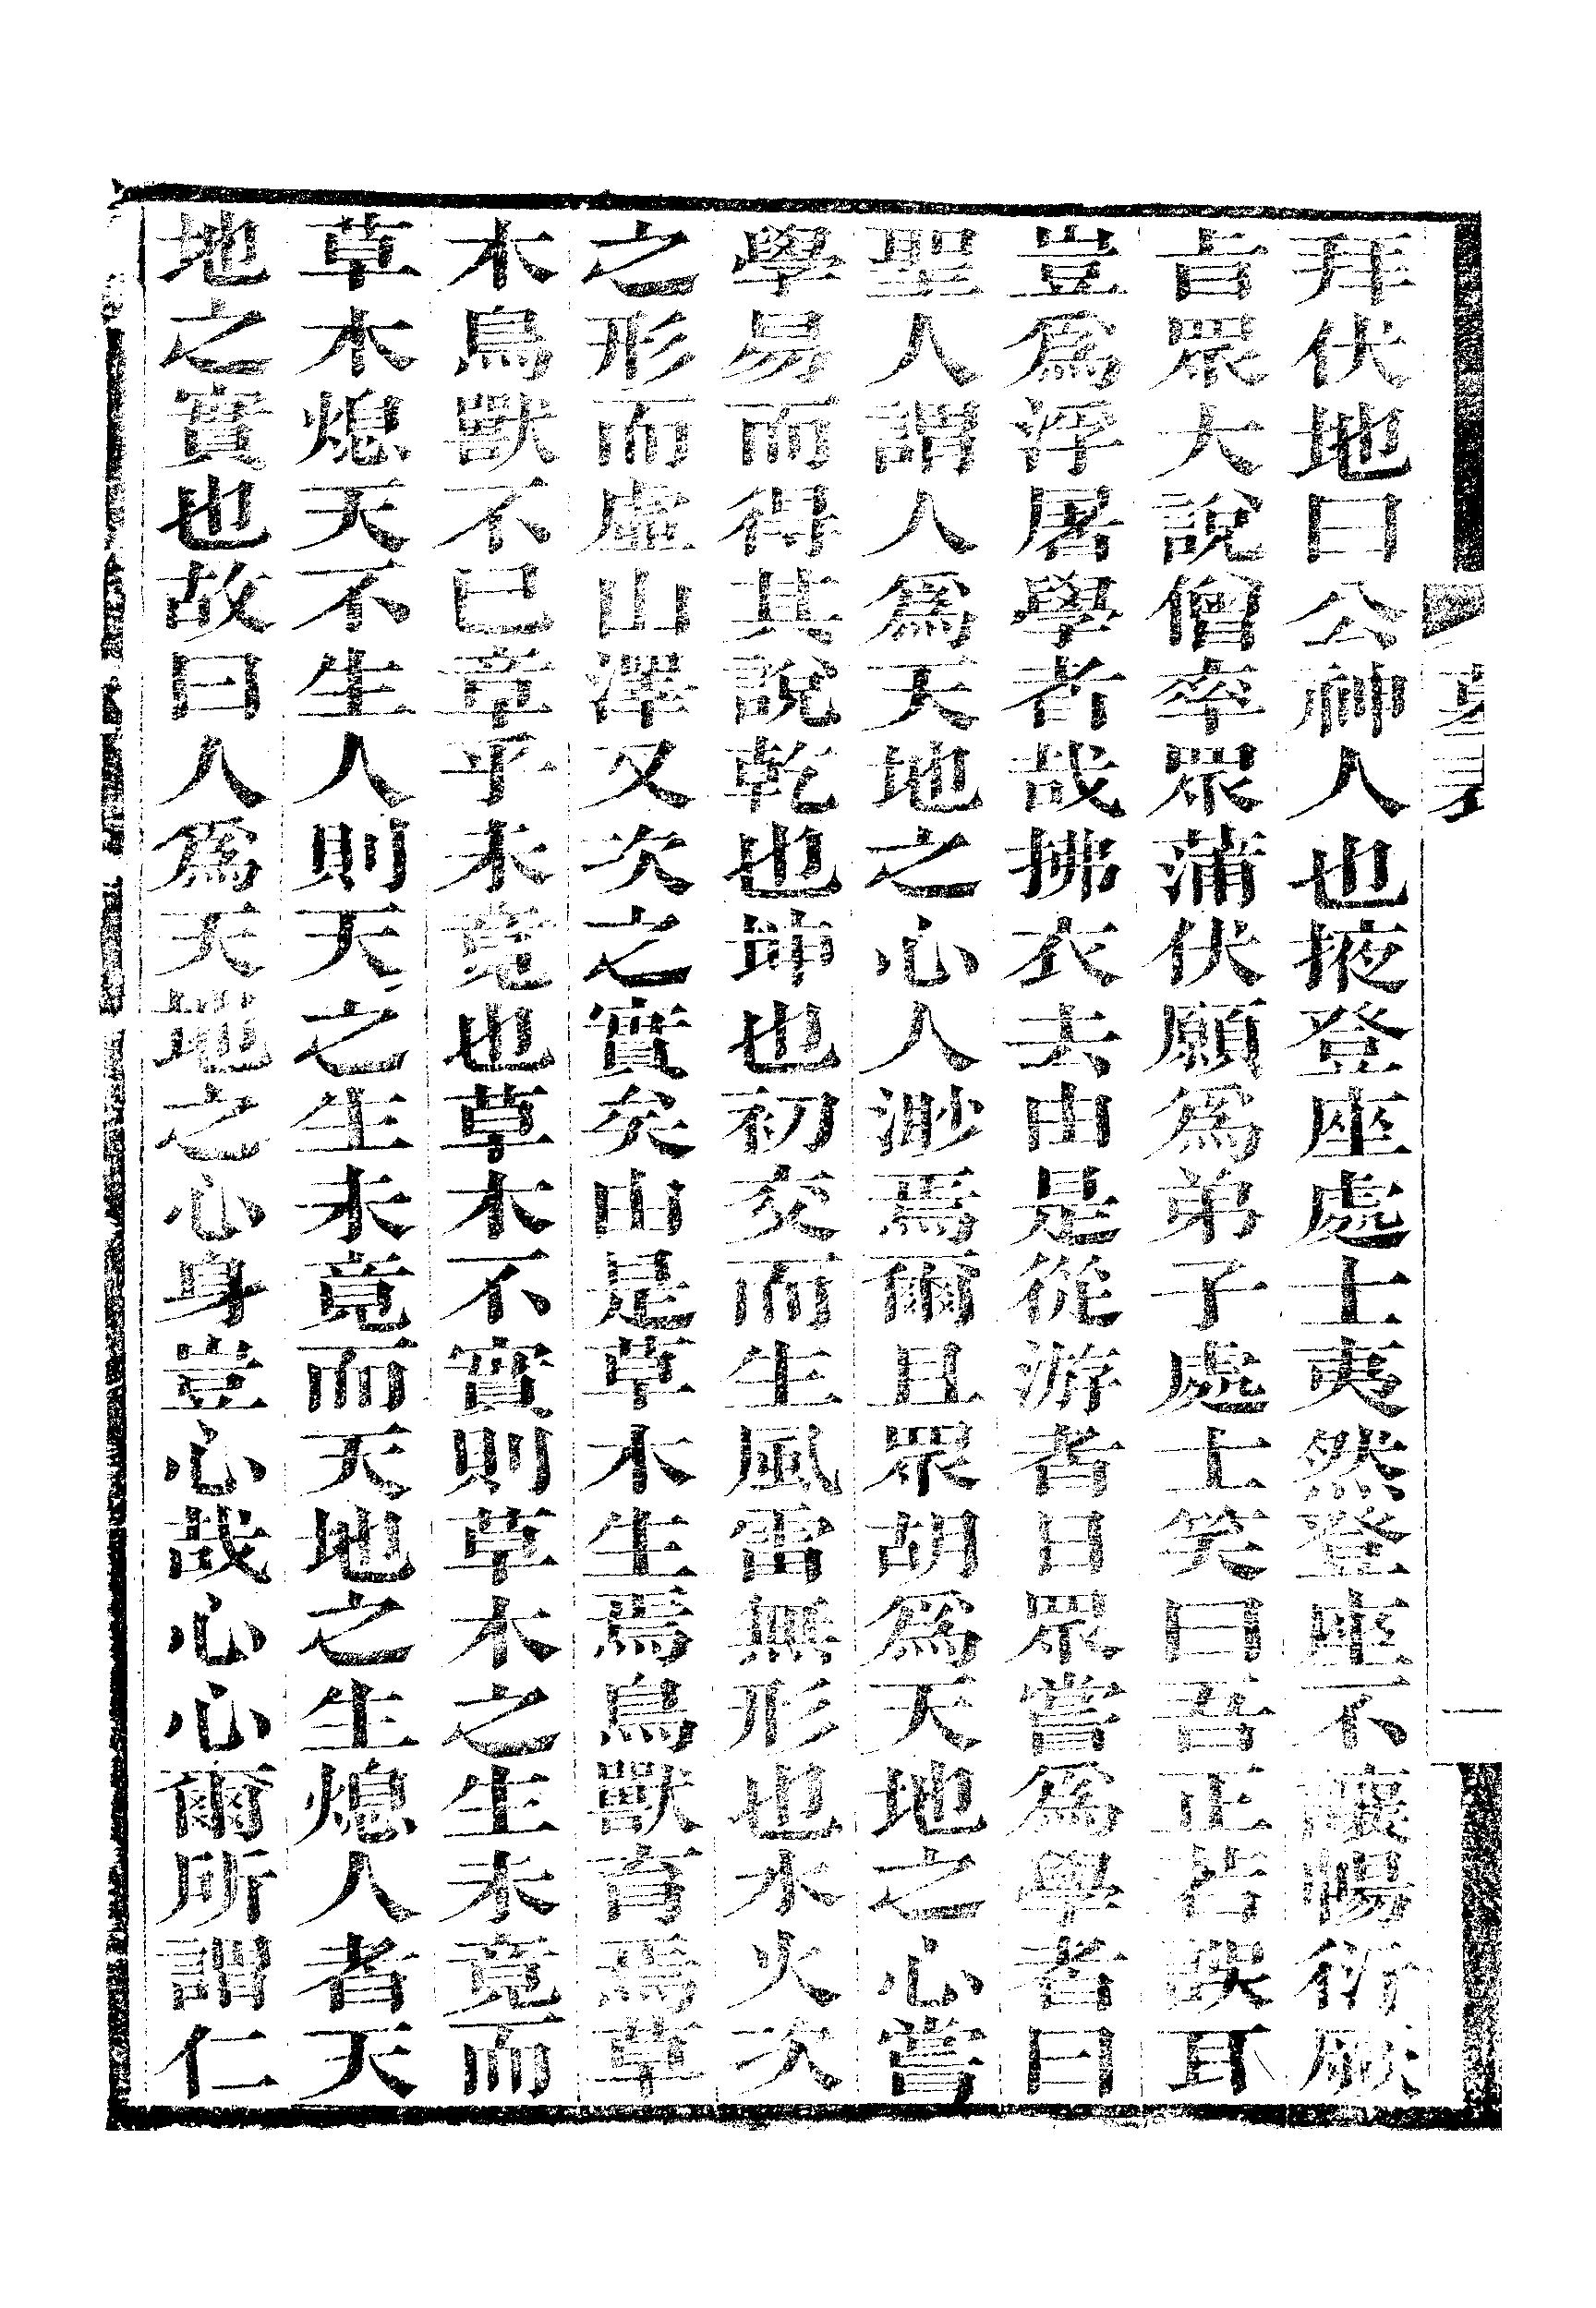 拜伏地曰公神人也掖登座處士夷然登座不讓暢衍厥
㫖眾大說僧率眾蒲伏願爲弟子處士笑曰吾正若誤耳
豈爲浮屠學者哉拂衣去由是從游者日眾嘗爲學者曰
聖人謂人爲天地之心人渺焉爾且眾胡爲天地之心嘗
學易而得其說乾也坤也初交而生風雷無形也水火次
之形而虛山澤又次之實矣由是草木生焉鳥獸育焉草
木鳥獸不已章乎未竟也草木不實則草木之生未竟而
草木熄天不生人則天之生未竟而天地之生熄人者天
地之實也故曰人爲天地之心身豈心哉心心爾所謂仁